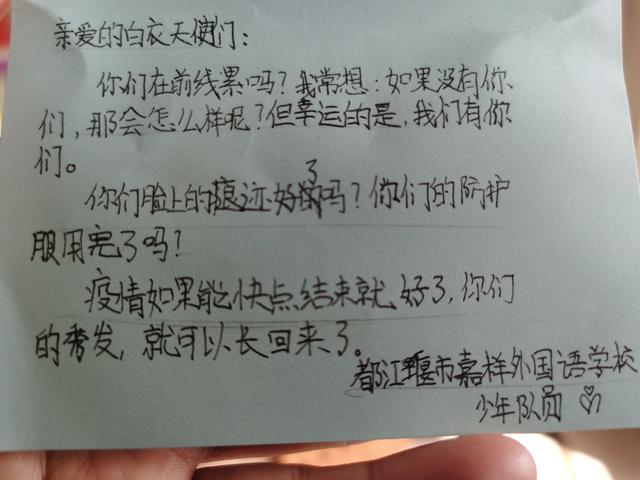 亲爱的白衣天使们：
你们在前线累吗？我常想：如果没有你
们，那会怎么样呢？但幸运的是，我们有你
们。
你们脸上的痕迹好了吗？你们的防护
服用完了吗？
疫情如果能快点结束就好了，你们
的秀发，就可以长回来了。
都江堰市嘉祥外国语学校
少年队员